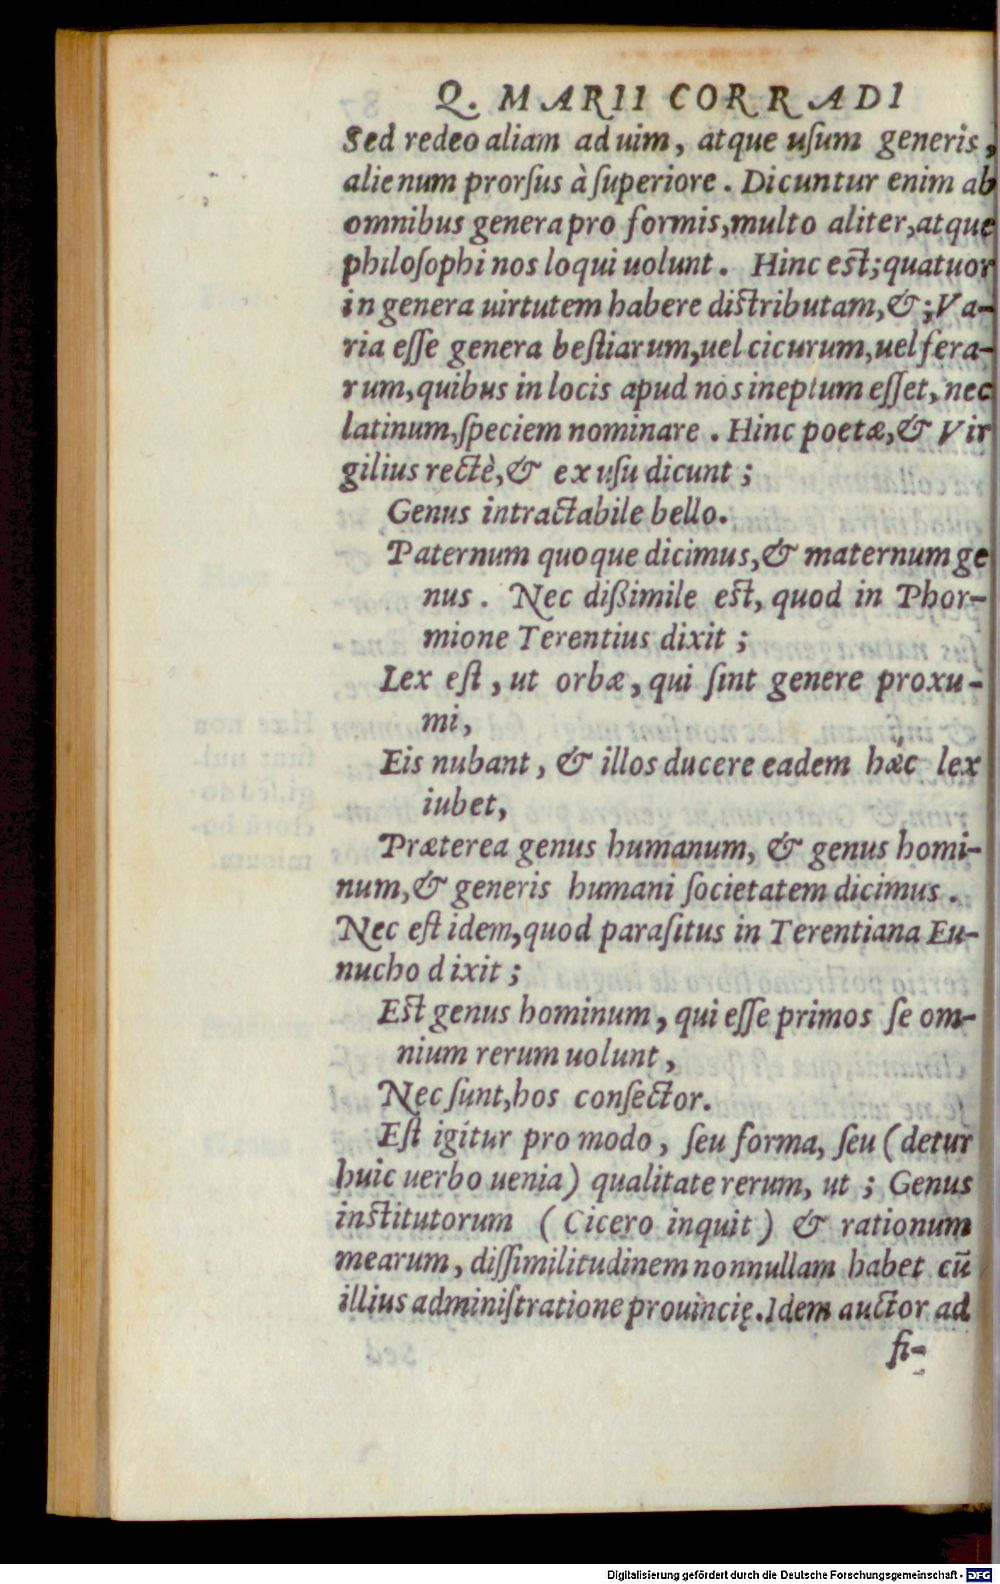 Q. MARII CORRADI
Sed redeo aliam ad uim, atque uſum generis,
alienum prorſus à ſuperiore. Dicuntur enim ab
omnibus genera pro formis, multo aliter, atque
philoſophi nos loqui uolunt. Hinc est; quatuor
in genera uirtutem habere distributam, &; Va-
ria eſſe genera beſtiarum, uel cicurum, uel fera-
rum, quibus in locis apud nos ineptum eſſet, nec
latinum, ſpeciem nominare. Hinc poetæ, & Vir
gilius rectè, & ex uſu dicunt;
Genus intractabile bello.
Paternum quoque dicimus, & maternum ge
nus. Nec dißimile est, quod in Phor-
mione Terentius dixit;
Lex eſt, ut orbæ, qui ſint genere proxu-
mi,
Eis nubant, & illos ducere eadem hæc lex
iubet,
Præterea genus humanum, & genus homi-
num, & generis humani ſocietatem dicimus.
Nec eſt idem, quod paraſitus in Terentiana Eu-
nucho dixit;
Est genus hominum, qui eſſe primos ſe om-
nium rerum uolunt,
Nec ſunt, hos conſector.
Eſt igitur pro modo, ſeu forma, ſeu (detur
huic uerbo uenia) qualitate rerum, ut; Genus
institutorum (Cicero inquit) & rationum
mearum, diſſimilitudinem nonnullam habet cū
illius adminiſtratione prouincię. Idem auctor ad
fi-
Digitalisierung gefördert durch die Deutsche Forschungsgemeinschaft - DFG